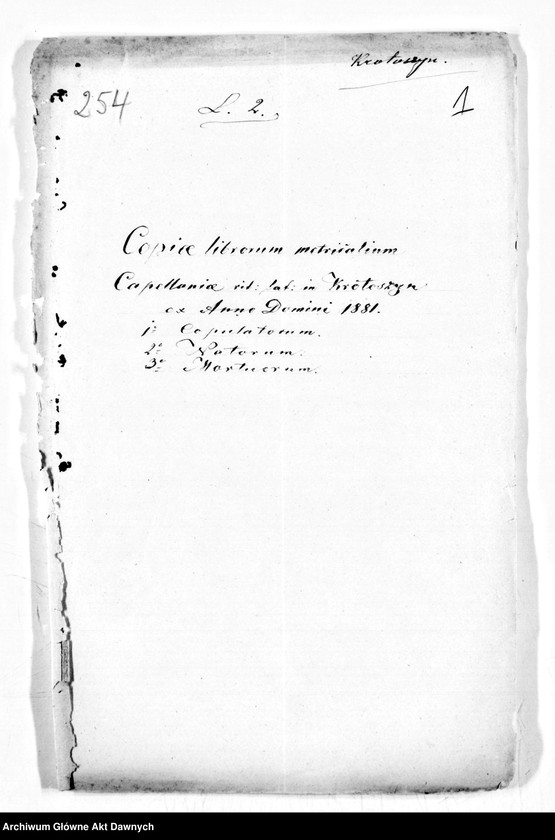 Krotoszyn.
254
L. 2.
1
Copiæ librorum metricalium
Capellaniæ rit: lat: in Krotoszyn
ex Anno Domini 1881.
1º Copulatorum.
2º Natorum.
3º Mortuorum.
Archiwum Główne Akt Dawnych